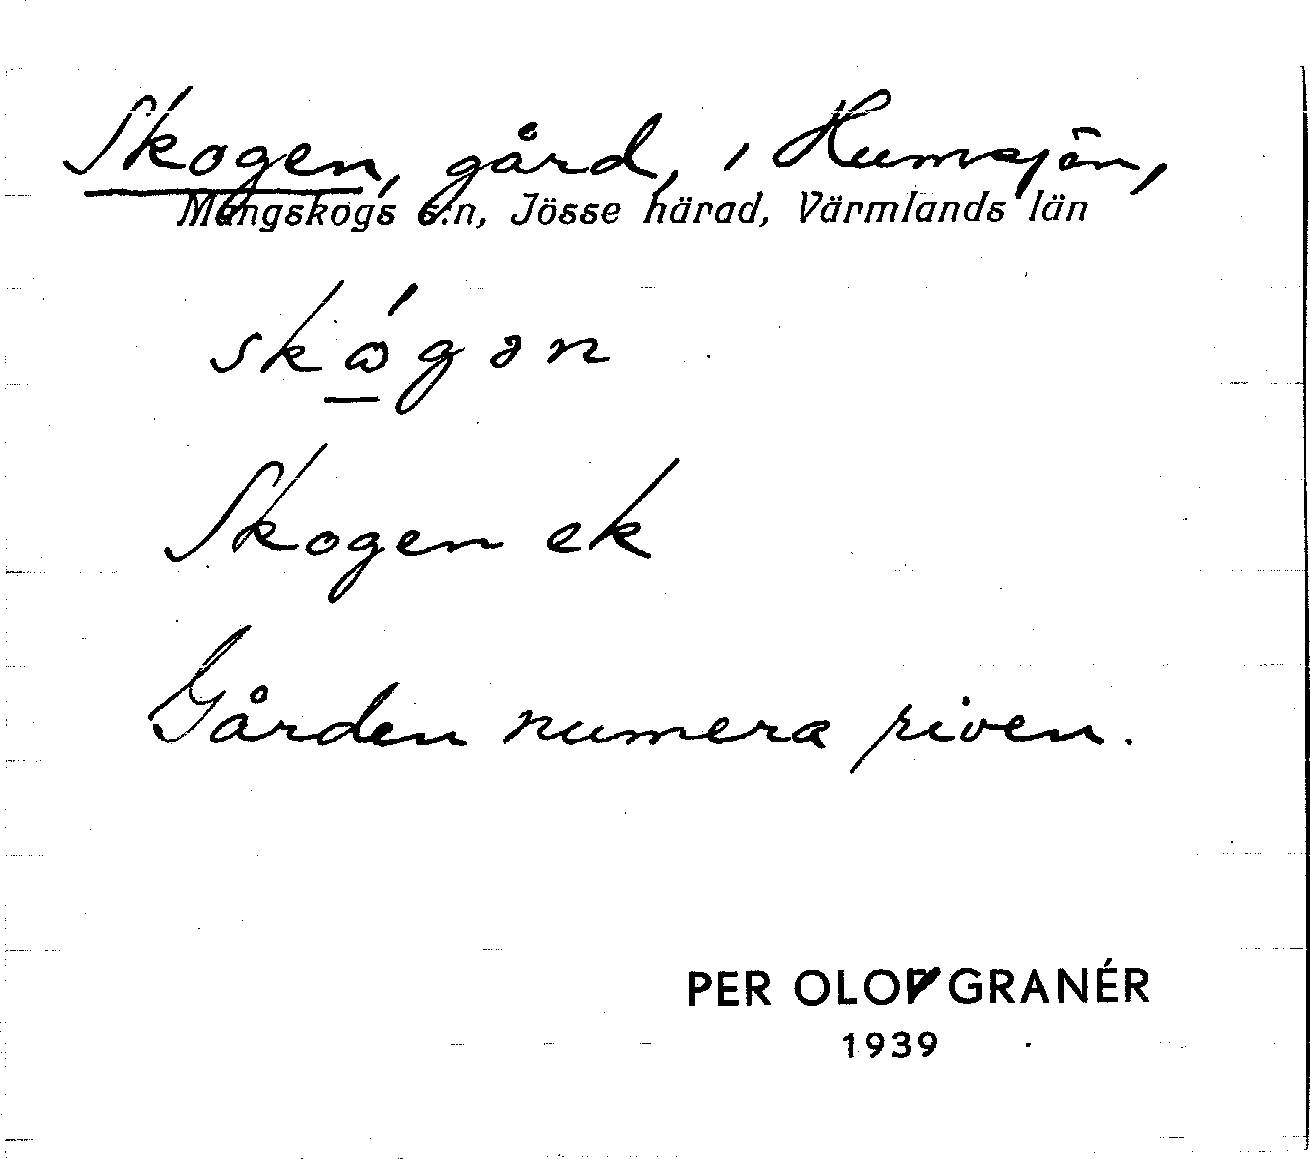 Skogen, gård, i Humsjön,
Mangskogs s:n, Jösse härad, Värmlands län
skógən
Skogen ek
Gården numera riven.
PER OLOF GRANÉR
1939